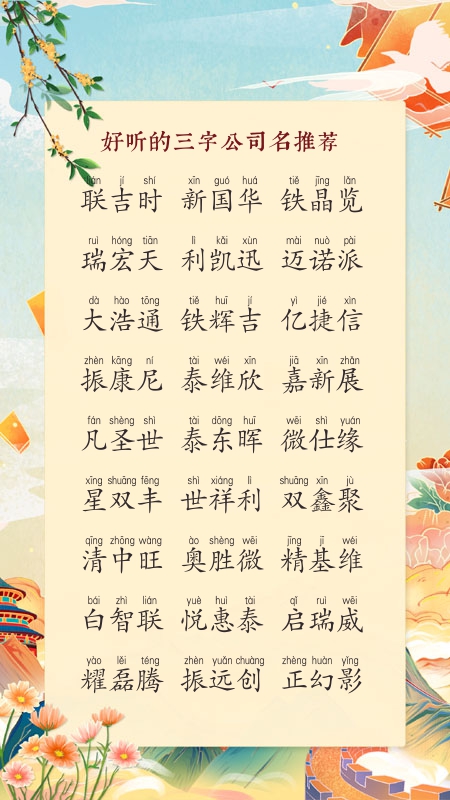 好听的三字公司名推荐
lián jí shí xīn guó huá tiě jīng lǎn
联吉时 新国华 铁晶览
ruì hóng tiān lì kǎi xùn mài nuò pài
瑞宏天 利凯迅 迈诺派
dà hào tōng tiě huī jí yì jié xìn
大浩通 铁辉吉 亿捷信
zhèn kāng ní tài wéi xīn jiā xīn zhǎn
振康尼 泰维欣 嘉新展
fán shèng shì tài dōng huī wēi shì yuán
凡圣世 泰东晖 微仕缘
xīng shuāng fēng shì xiáng lì shuāng xīn jù
星双丰 世祥利 双鑫聚
qīng zhōng wàng ào shèng wēi jīng jī wéi
清中旺 奥胜微 精基维
bái zhì lián yuè huì tài qǐ ruì wēi
白智联 悦惠泰 启瑞威
yào lěi téng zhèn yuǎn chuàng zhèng huàn yǐng
耀磊腾 振远创 正幻影